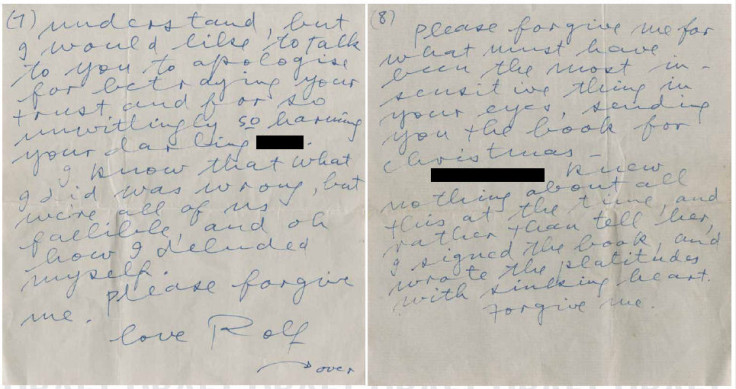 (7) understand, but
I would like to talk
to you to apologise
for betraying your
trust and for so
unwittingly so harming
your darling
I know that what
I did was wrong, but
we're all of us
fallible, and oh
how I deluded
myself.
Please forgive
me.
love Rolf
over
(8) Please forgive me for
what must have
been the most in-
sensitive thing in
your eyes, sending
you the book for
Christmas -
knew
nothing about all
this at the time, and
rather than tell her,
I signed the book, and
wrote the platitudes
with sinking heart.
Forgive me.